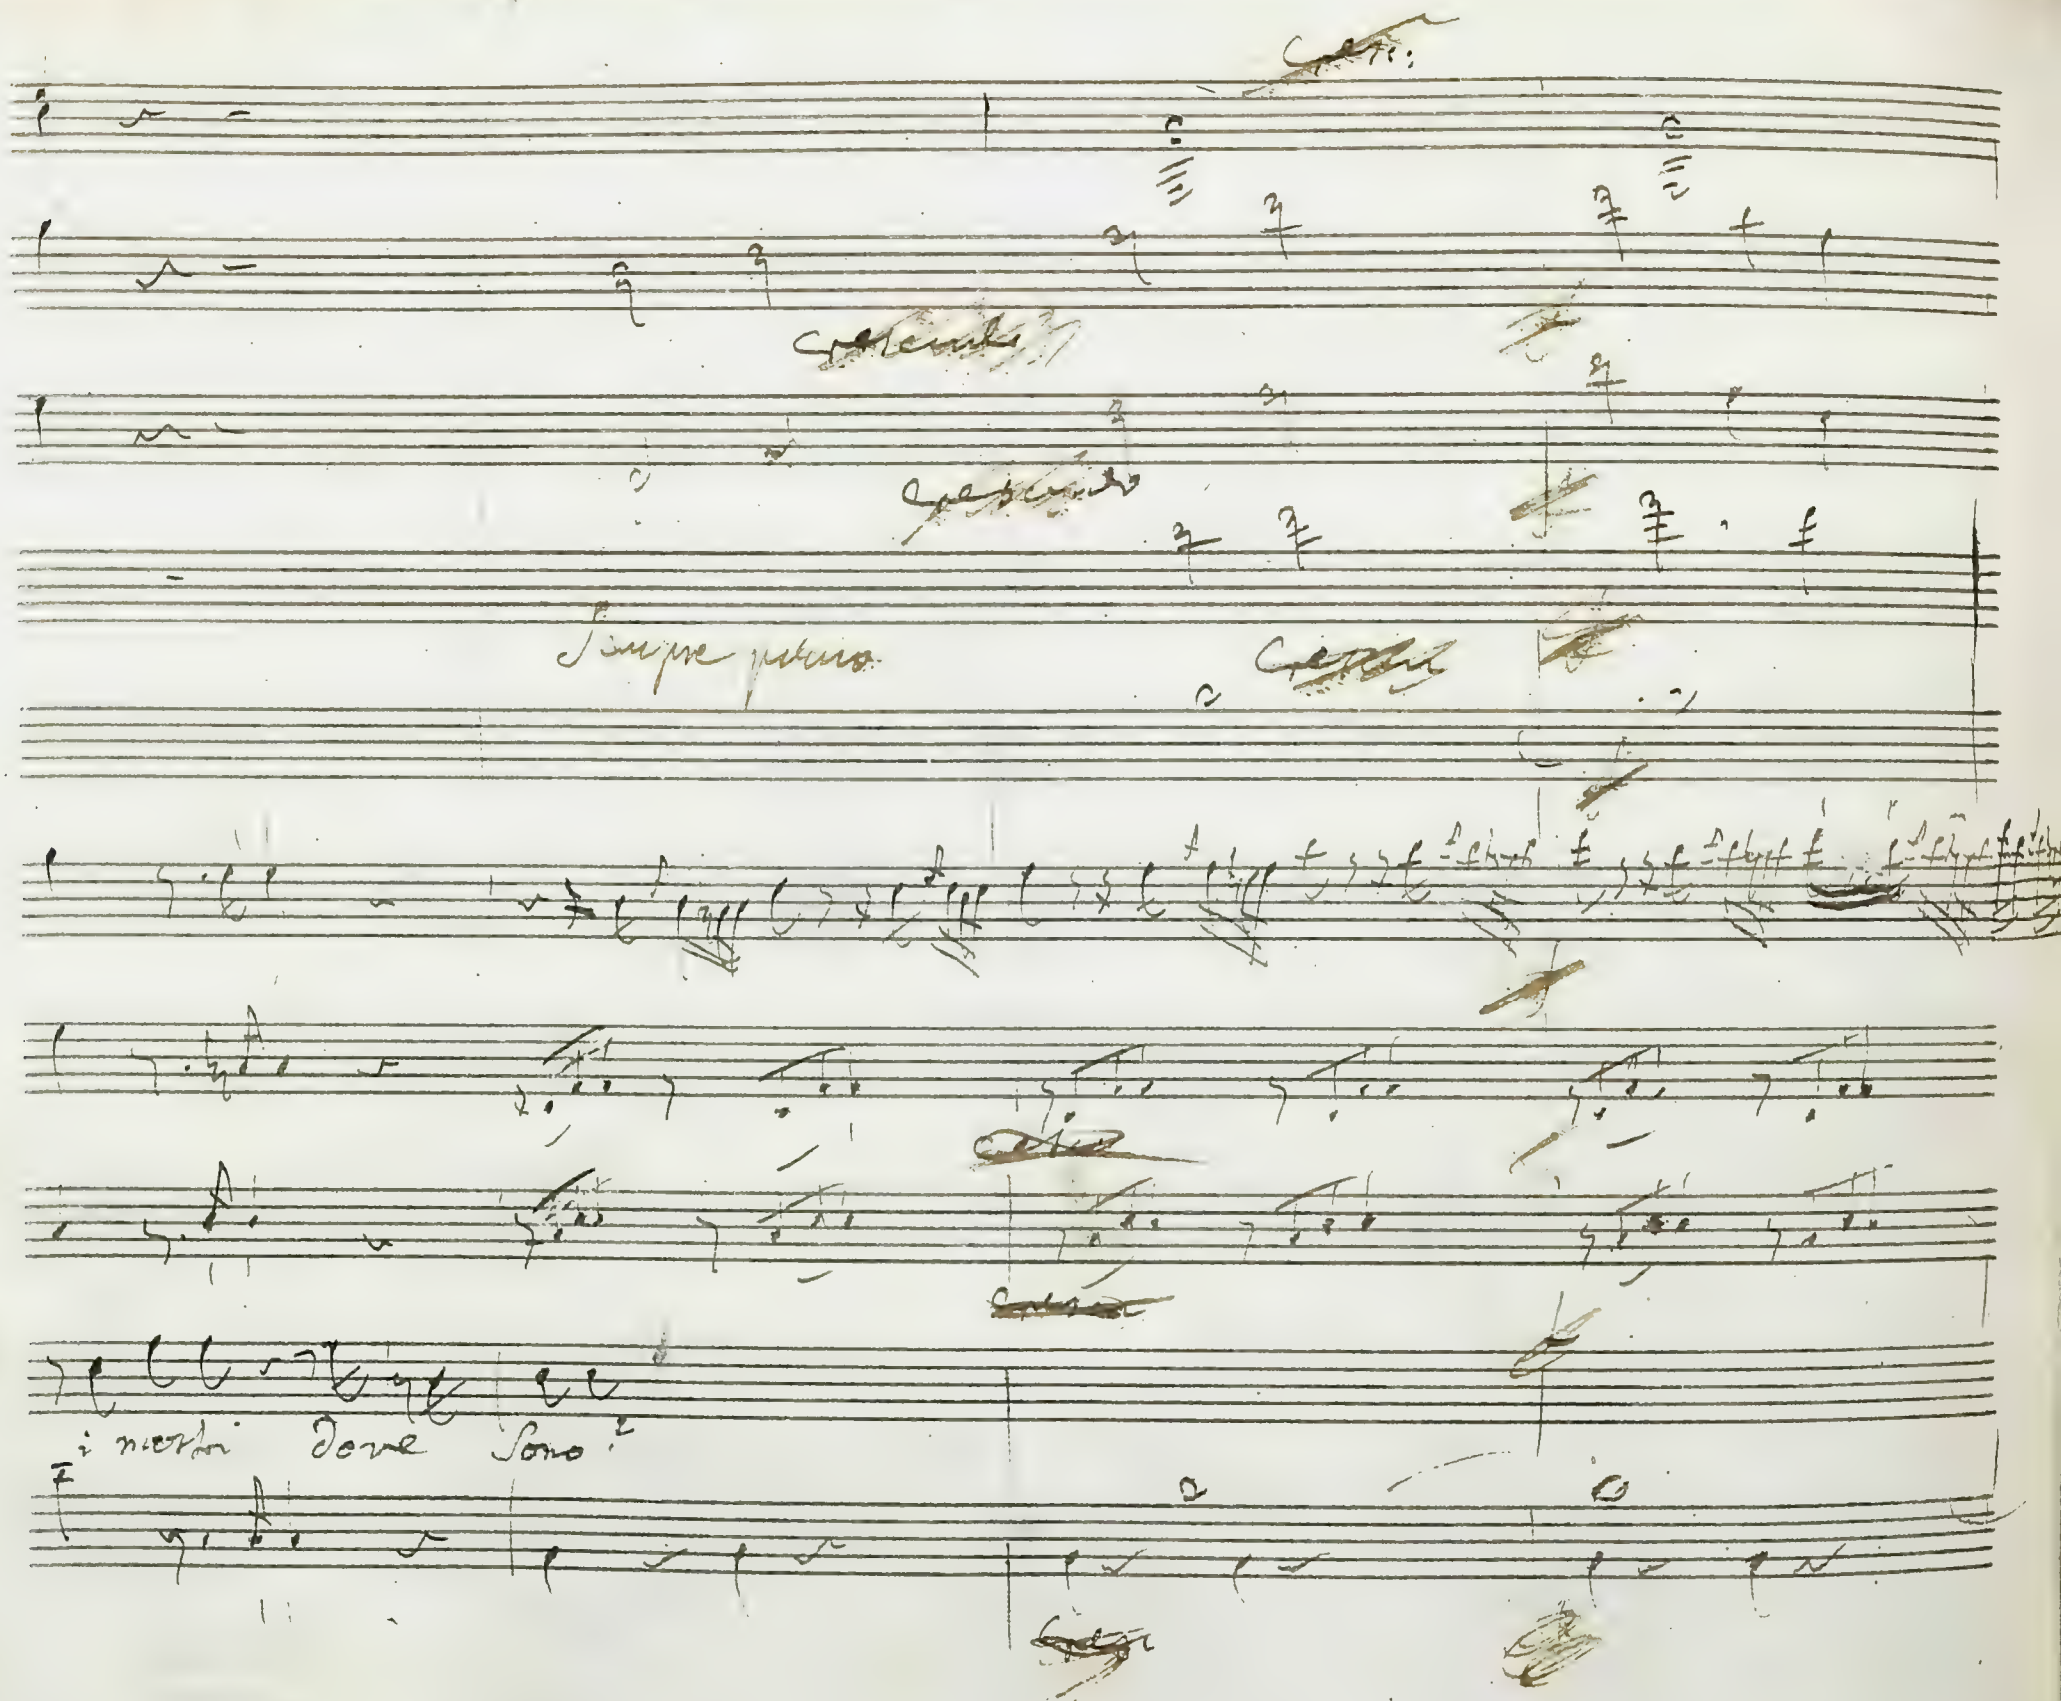 Cresc:
crescendo
crescendo
Sempre piano
Cresc
cresc
cresc
i nostri dove sono?
Cresc